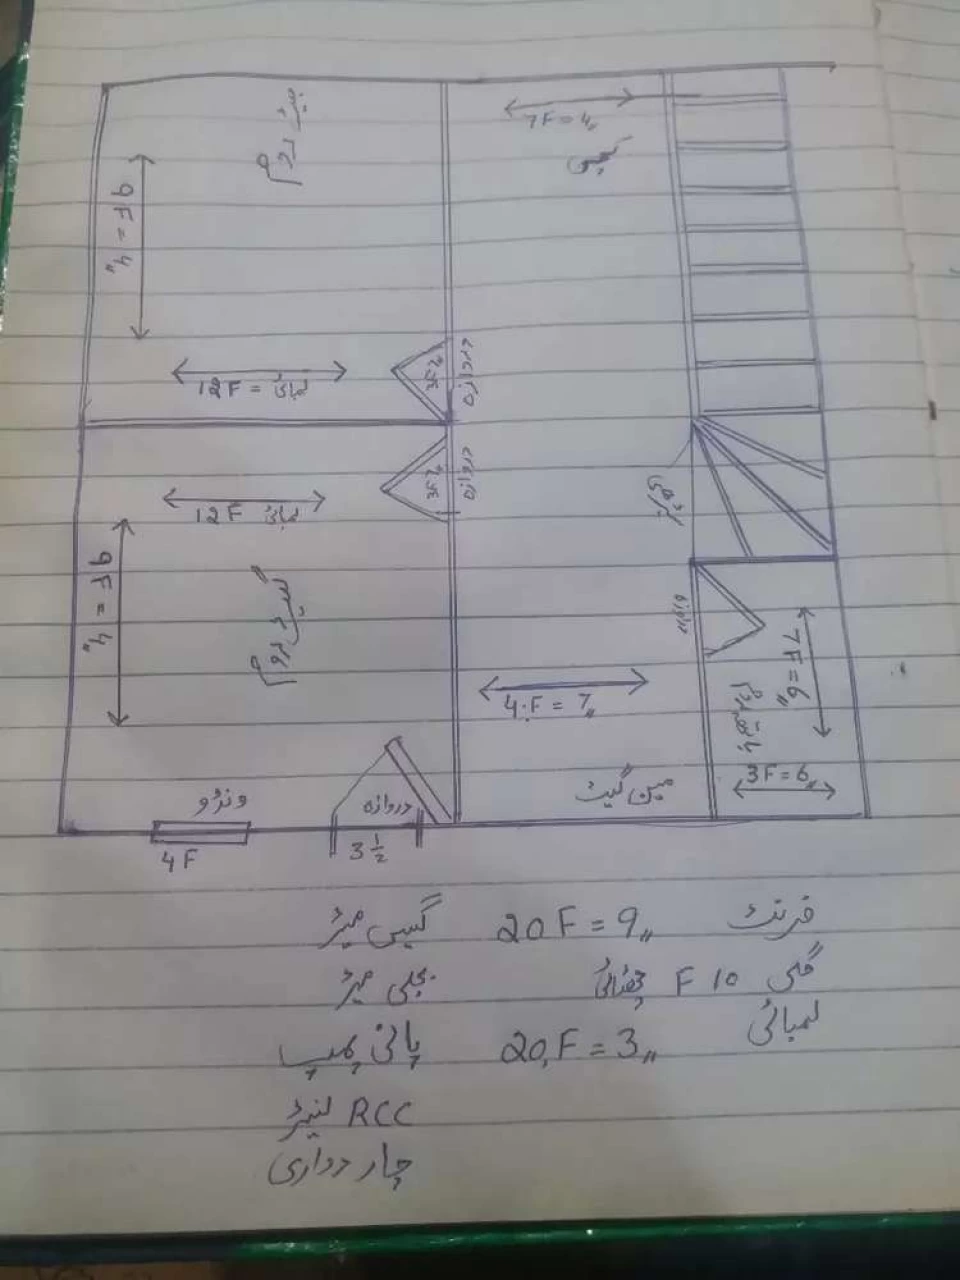 بیڈ روم
9F = 4"
12F = لمبائی
دروازہ
2½F
7F = 4"
کچن
دروازہ
2½F
12F لمبائی
9F = 4"
گیسٹ روم
سیڑھی
دروازہ
7F = 6"
باتھ روم
3F = 6"
4.F = 7"
مین گیٹ
ونڈو
4F
دروازہ
3 ½
فرنٹ 20F = 9" گیس میٹر
گلی 10 F چوڑائی بجلی میٹر
لمبائی 20F = 3" پانی پمپ
RCC لنیٹر
چار دواری